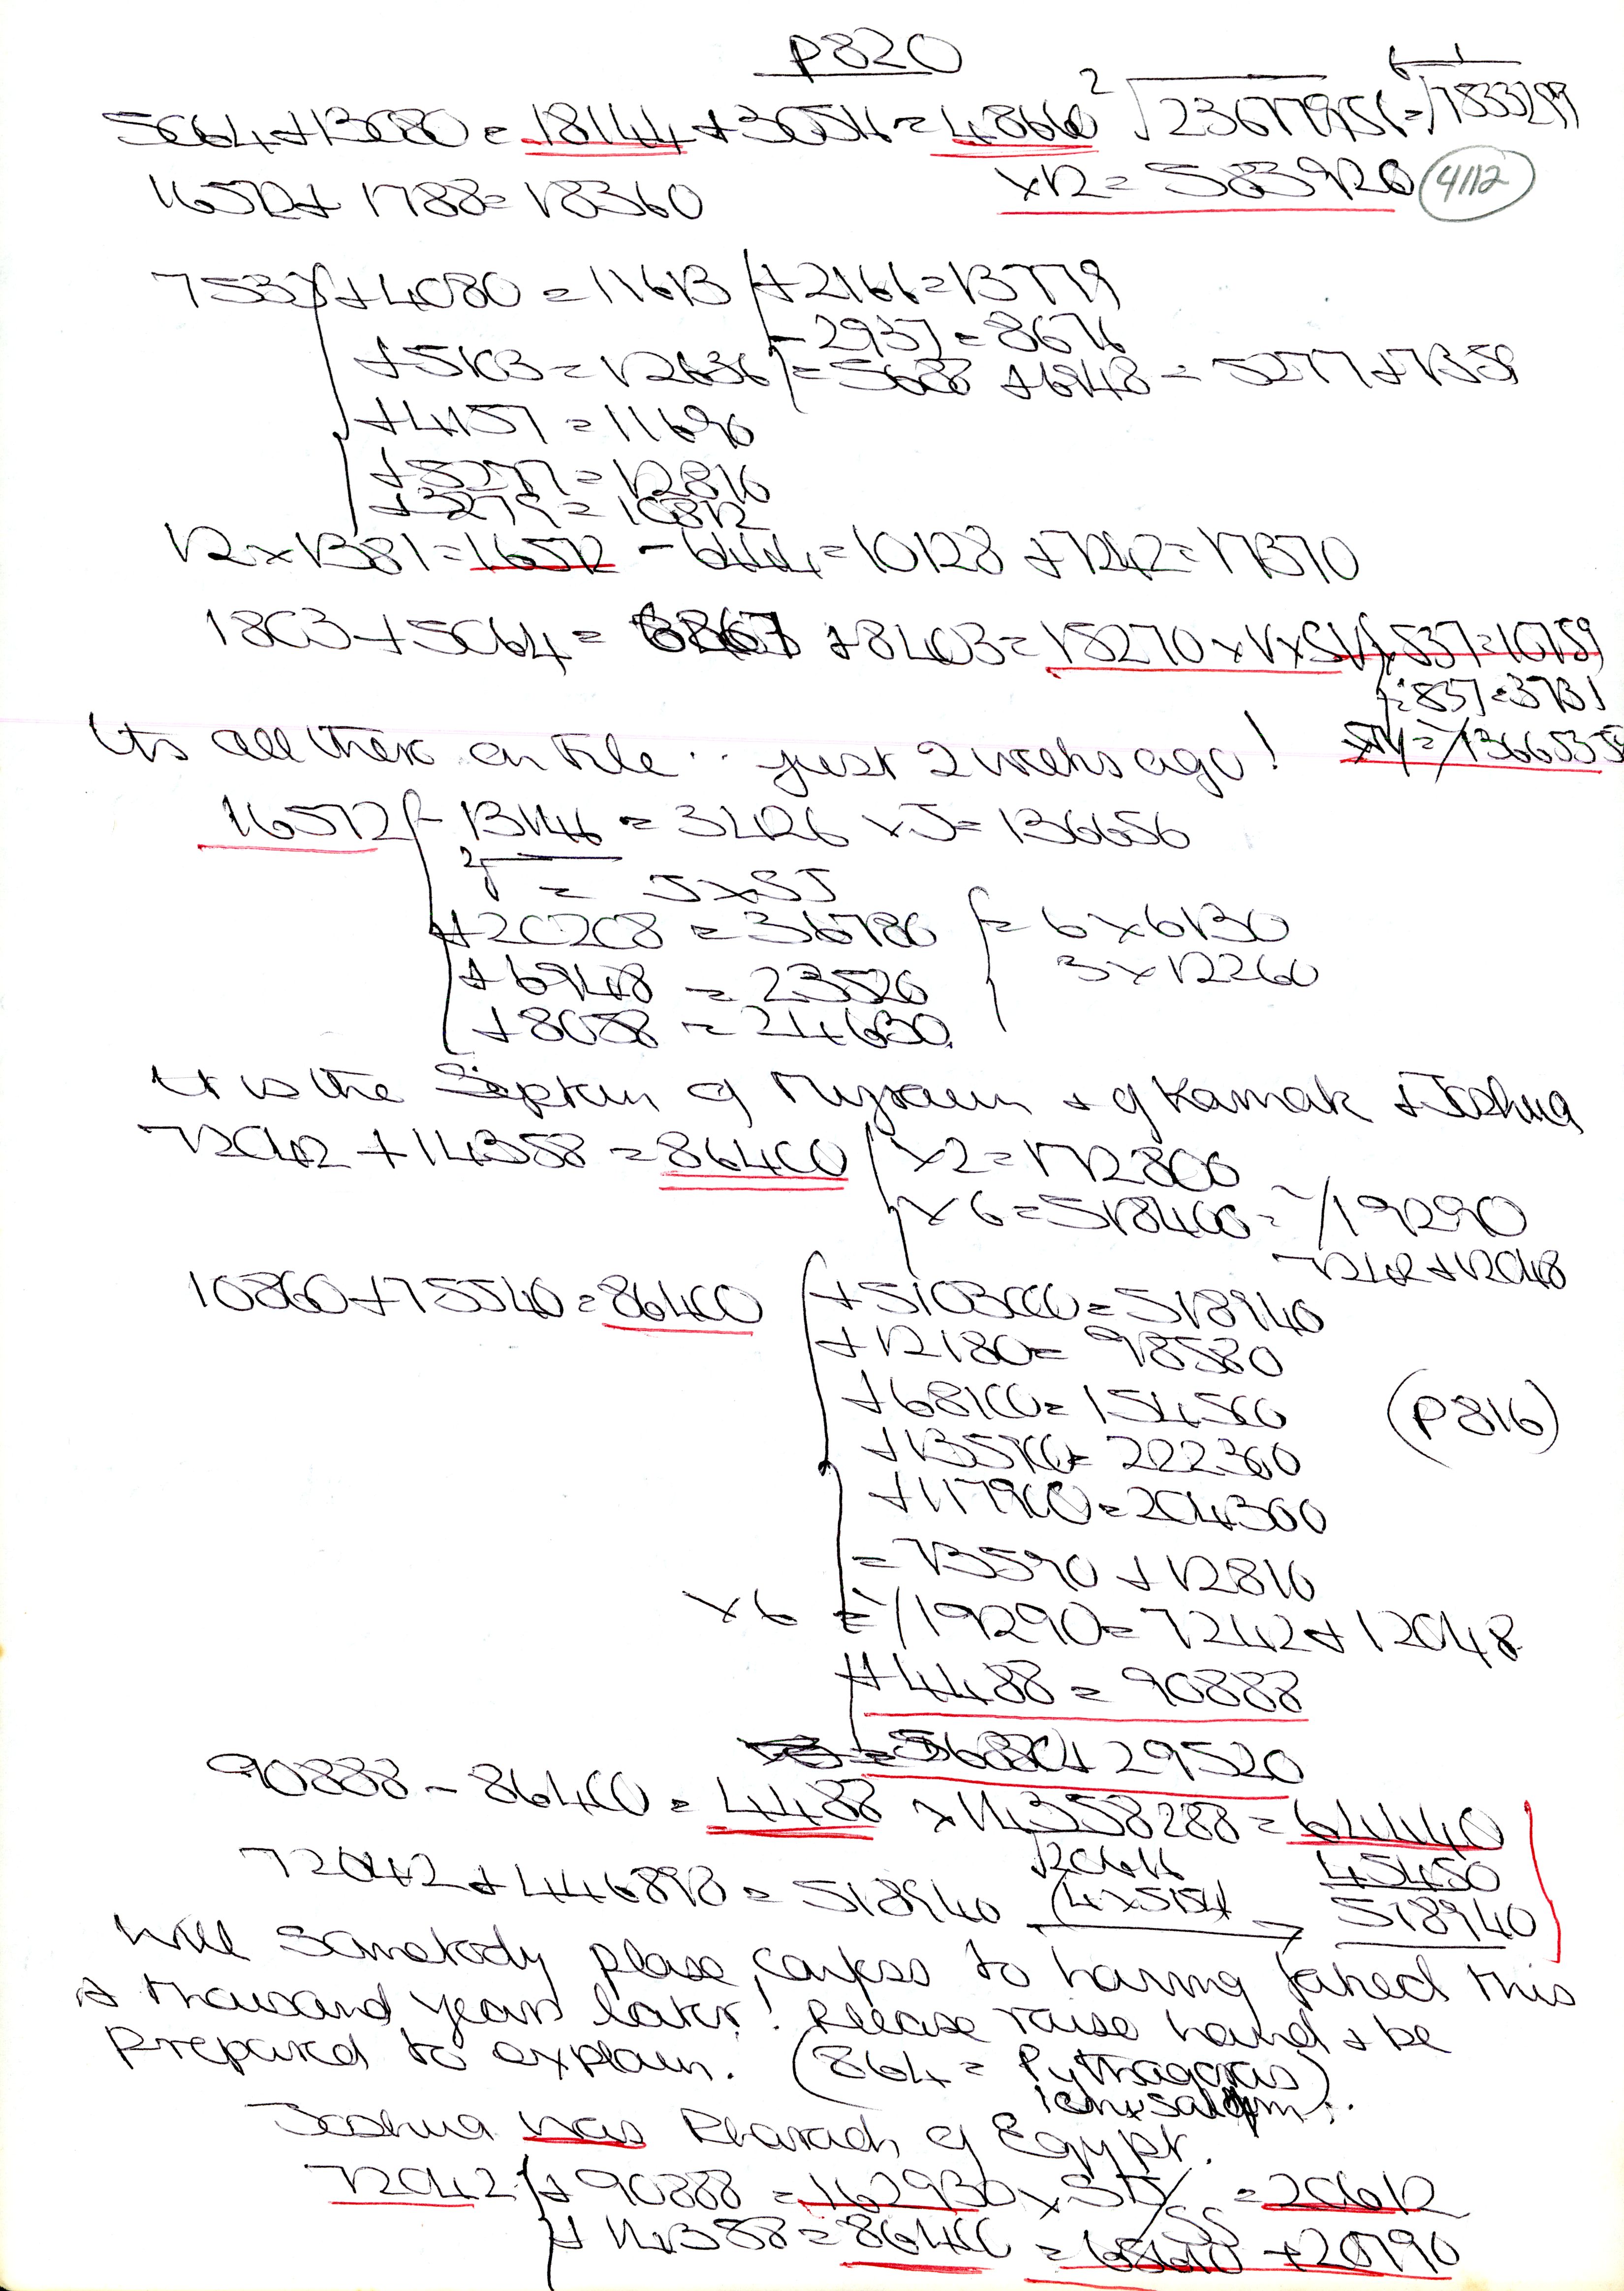 P820
5064+13080 = 18144 + 30516 = 48660 2√23677956 = 6√1833299
16572 + 1788 = 18360 x12 = 583920 4112
7533 + 4080 = 11613 + 2166 = 13779
- 2937 = 8676
+ 5103 = 12636 = 5688 + 6948 = 5277 + 7359
+ 4157 = 11690
+ 5277 = 12810
+ 3279 = 10812
12 x 1381 = 16572 - 6444 = 10128 + 7242 = 17370
1803 + 5064 = 6867 + 8403 = 15270
Its all there on File .. just 2 weeks ago!
16572 - 13146 = 3426 x 5 = 136656
= 5 x 55
+ 20208 = 36780 = 6 x 6130
+ 6948 = 23520 3 x 12260
+ 8058 = 24630
It is the of + of Karnak + Joshua
72042 + 14358 = 86400 x 2 = 172800
x 6 = 518400 = ~/19290
7242 + 12048
10860 + 75540 = 86400 + 5103000 = 518940
+ 12180 = 98580
+ 68100 = 154500 (P816)
= 222360
+ 117900 = 204300
= 73590 + 12810
x 6 = ~/19290 = 7242 + 12048
+ 4488 = 90888
= 56880 + 29520
90888 - 86400 = 4488 x 14358288 = 64440
454500
72042 + 446898 = 518940 (4x5154) → 518940
Will Somebody please, confess to having faked this
A thousand years later! Please raise hand + be
prepared to explain. (864 = Pythagoras)
Joshua was Pharaoh of Egypt.
72042 + 90888 = 162930 x 55/55 = 20612
+ 14358 = 86400 = 65610 + 20790